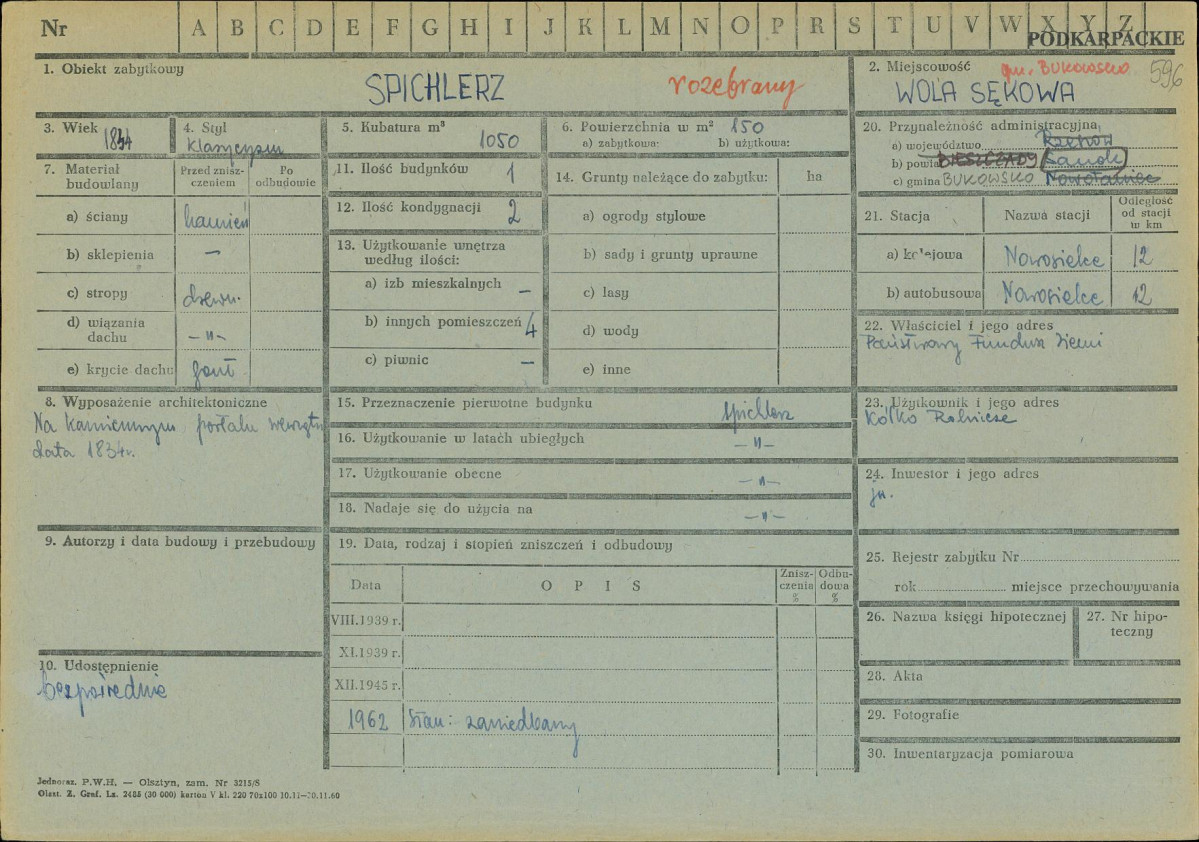 Nr A B C D E F G H I J K L M N O P R S T U V W X Y Z
PODKARPACKIE
1. Obiekt zabytkowy
SPICHLERZ
rozebrany
2. Miejscowość
gm. BUKOWSKO
596
WOLA SĘKOWA
3. Wiek
1834
4. Styl
Klasycyzm
5. Kubatura m³
1050
6. Powierzchnia w m² 150
a) zabytkowa: b) użytkowa:
20. Przynależność administracyjna
a) województwo Rzeszów
b) powiat BIESZCZADY Sanok
c) gmina BUKOWSKO Nowotaniec
7. Materiał budowlany
Przed zniszczeniem
Po odbudowie
a) ściany kamień
b) sklepienia —
c) stropy drewn.
d) wiązania dachu —"—
e) krycie dachu gont
11. Ilość budynków 1
12. Ilość kondygnacji 2
13. Użytkowanie wnętrza według ilości:
a) izb mieszkalnych —
b) innych pomieszczeń 4
c) piwnic —
14. Grunty należące do zabytku: ha
a) ogrody stylowe
b) sady i grunty uprawne
c) lasy
d) wody
e) inne
21. Stacja
Nazwa stacji
Odległość od stacji w km
a) kolejowa Nowosielce 12
b) autobusowa Nowosielce 12
22. Właściciel i jego adres
Państwowy Fundusz Ziemi
8. Wyposażenie architektoniczne
Na kamiennym portalu wewnątrz
data 1834r.
15. Przeznaczenie pierwotne budynku spichlerz
16. Użytkowanie w latach ubiegłych —"—
17. Użytkowanie obecne —"—
18. Nadaje się do użycia na —"—
23. Użytkownik i jego adres
Kółko Rolnicze
24. Inwestor i jego adres
jw.
9. Autorzy i data budowy i przebudowy
19. Data, rodzaj i stopień zniszczeń i odbudowy
Data
O P I S
Zniszczenia %
Odbudowa %
VIII.1939 r.
XI.1939 r.
XII.1945 r.
1962 Stan: zaniedbany
25. Rejestr zabytku Nr
rok miejsce przechowywania
26. Nazwa księgi hipotecznej
27. Nr hipoteczny
28. Akta
29. Fotografie
30. Inwentaryzacja pomiarowa
10. Udostępnienie
bezpośrednie
Jednoraz. P.W.H. — Olsztyn, zam. Nr 3215/S
Olszt. Z. Graf. Lz. 2485 (30 000) karton V kl. 220 70x100 10.11—20.11.60